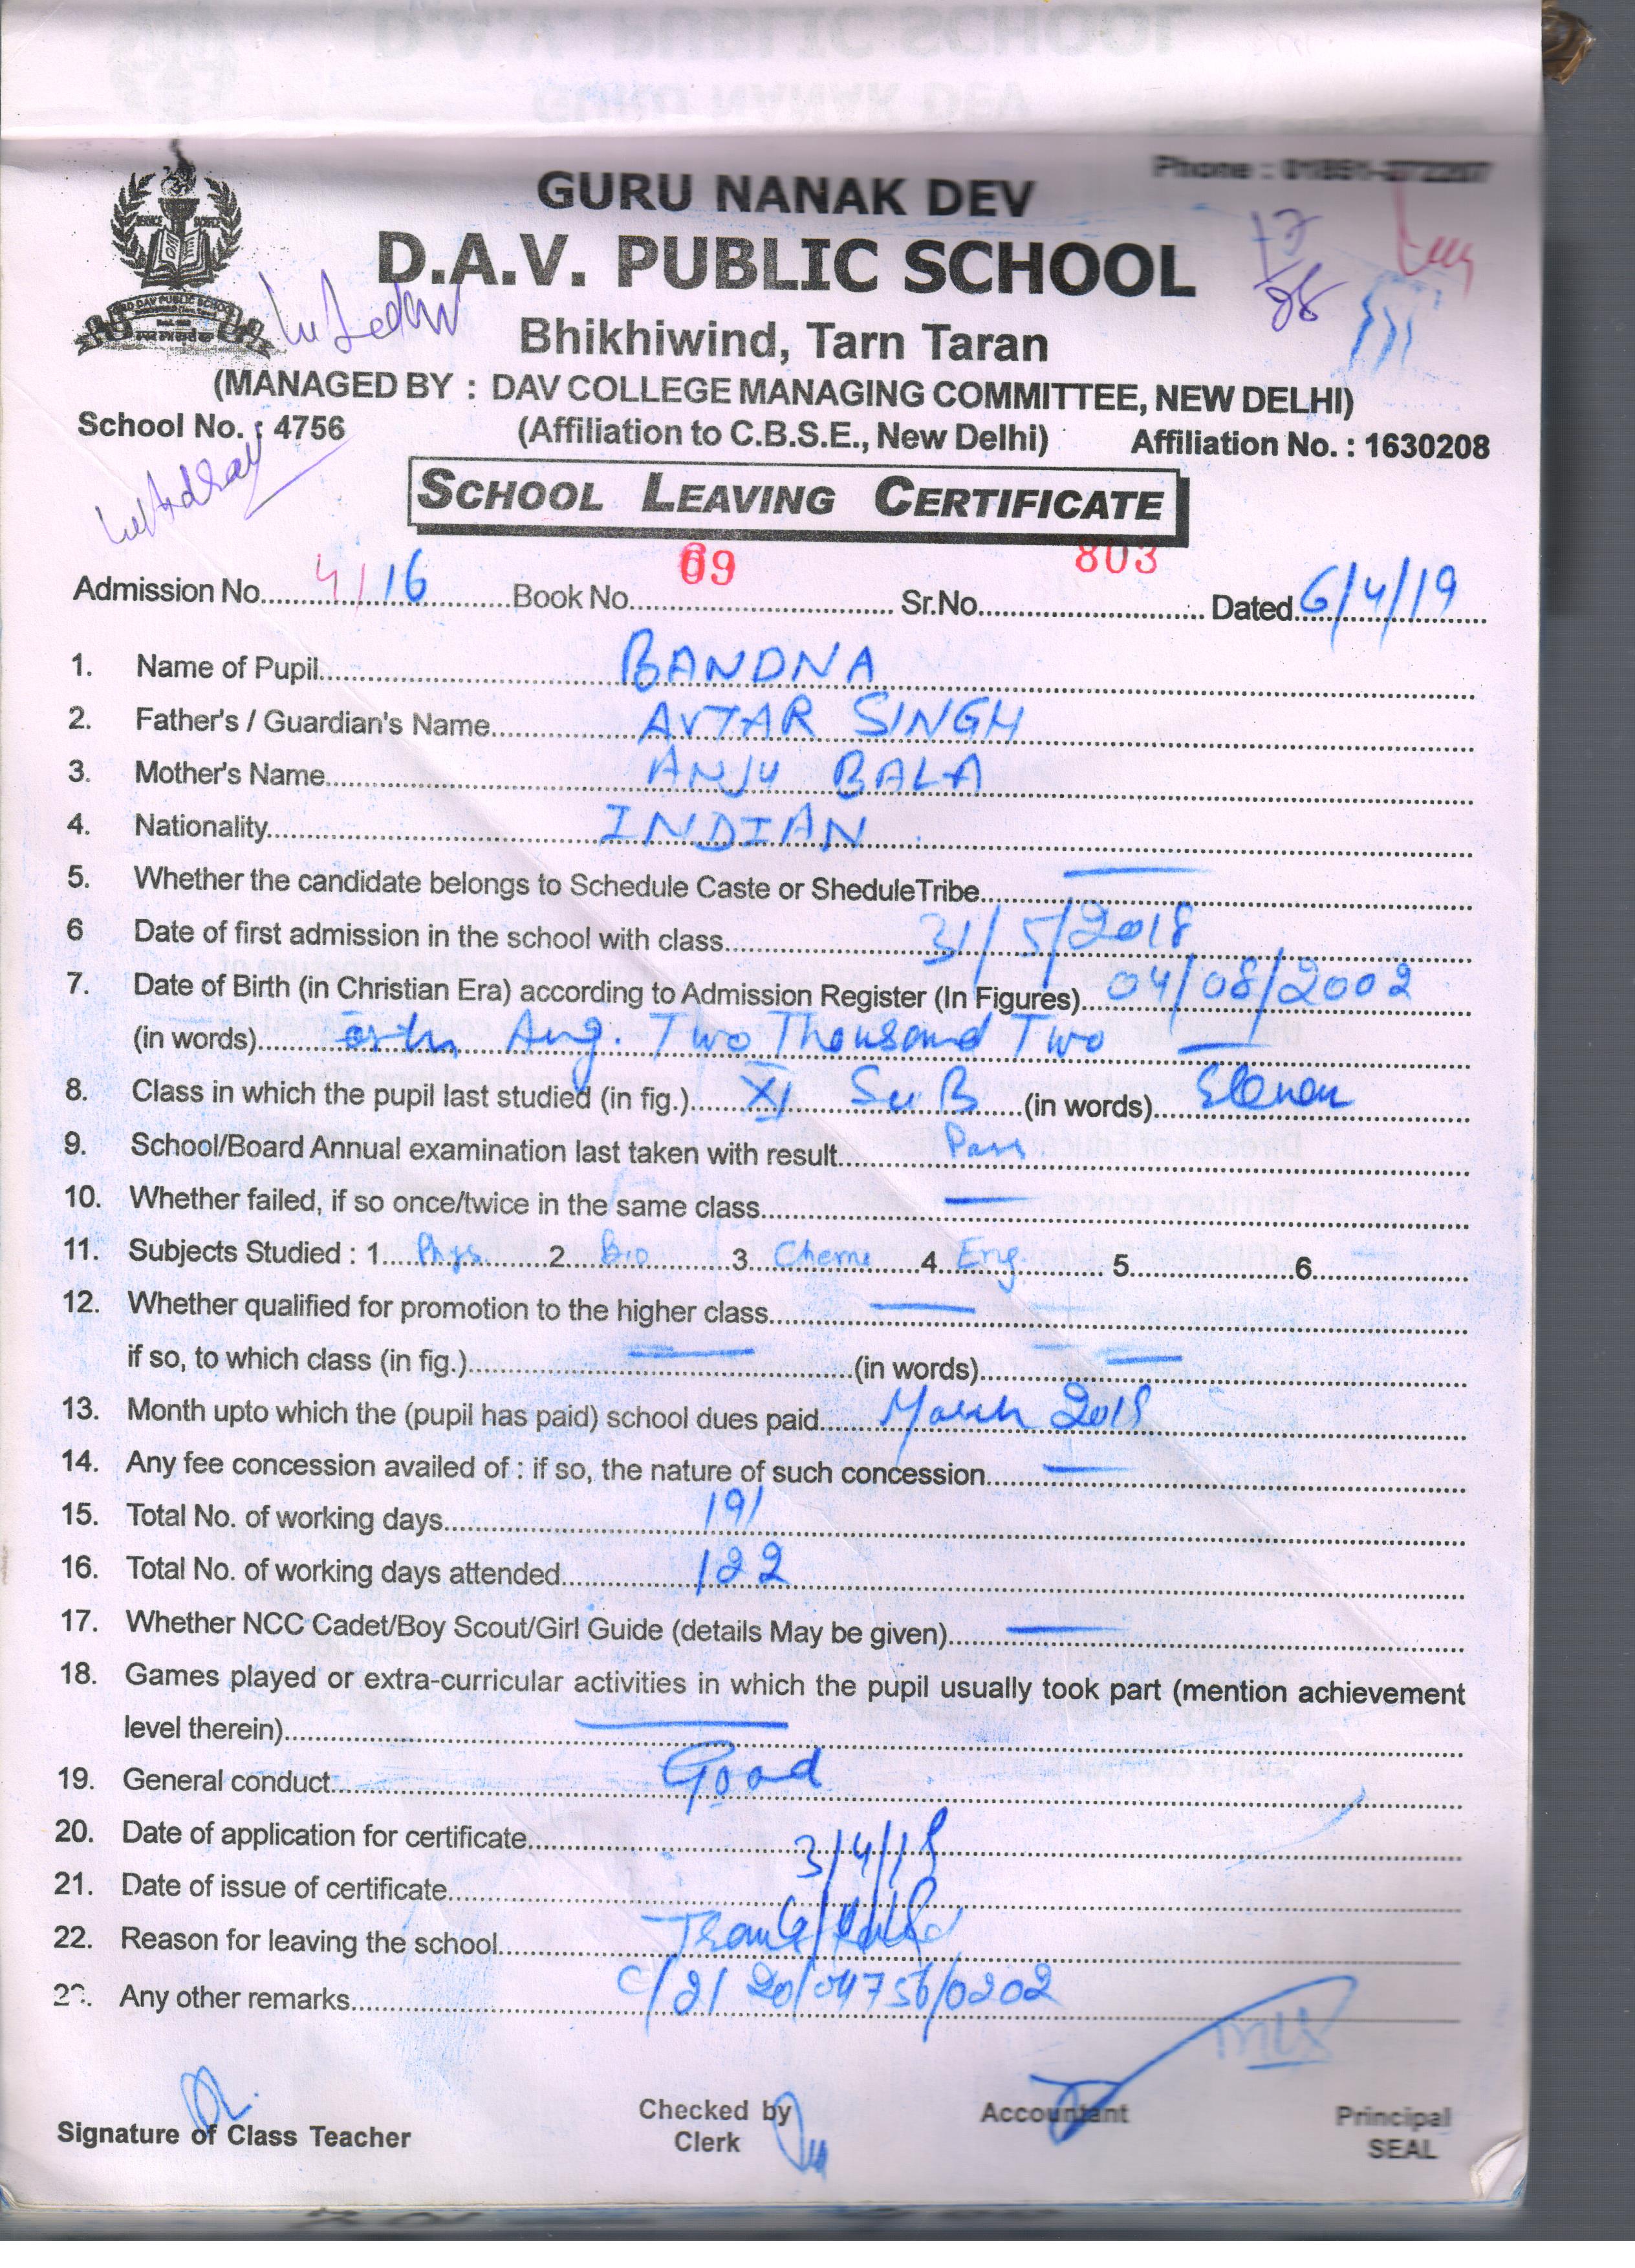 GURU NANAK DEV
D.A.V. PUBLIC SCHOOL
Bhikhiwind, Tarn Taran
(MANAGED BY : DAV COLLEGE MANAGING COMMITTEE, NEW DELHI)
School No. : 4756 (Affiliation to C.B.S.E., New Delhi) Affiliation No. : 1630208
SCHOOL LEAVING CERTIFICATE
Admission No. 4/16 Book No. 69 Sr.No. 803 Dated 6/4/19
1. Name of Pupil BANDNA
2. Father's / Guardian's Name AVTAR SINGH
3. Mother's Name ANJU BALA
4. Nationality INDIAN
5. Whether the candidate belongs to Schedule Caste or SheduleTribe —
6 Date of first admission in the school with class 31/5/2018
7. Date of Birth (in Christian Era) according to Admission Register (In Figures) 04/08/2002
(in words) Aug. Two Thousand Two —
8. Class in which the pupil last studied (in fig.) XI B (in words) Eleven
9. School/Board Annual examination last taken with result Pass
10. Whether failed, if so once/twice in the same class —
11. Subjects Studied : 1 Phys. 2 Bio 3 Chem 4 Eng. 5 6
12. Whether qualified for promotion to the higher class —
if so, to which class (in fig.) — (in words) —
13. Month upto which the (pupil has paid) school dues paid March 2018
14. Any fee concession availed of : if so, the nature of such concession —
15. Total No. of working days 191
16. Total No. of working days attended 122
17. Whether NCC Cadet/Boy Scout/Girl Guide (details May be given) —
18. Games played or extra-curricular activities in which the pupil usually took part (mention achievement
level therein) —
19. General conduct Good
20. Date of application for certificate 3/4/18
21. Date of issue of certificate
22. Reason for leaving the school
23. Any other remarks
Signature of Class Teacher Checked by Accountant Principal
Clerk SEAL